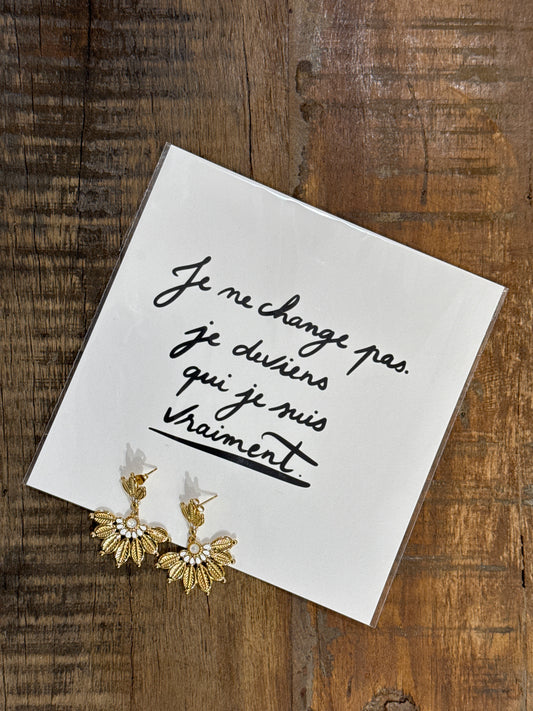 Je ne change pas.
je deviens
qui je suis
vraiment.